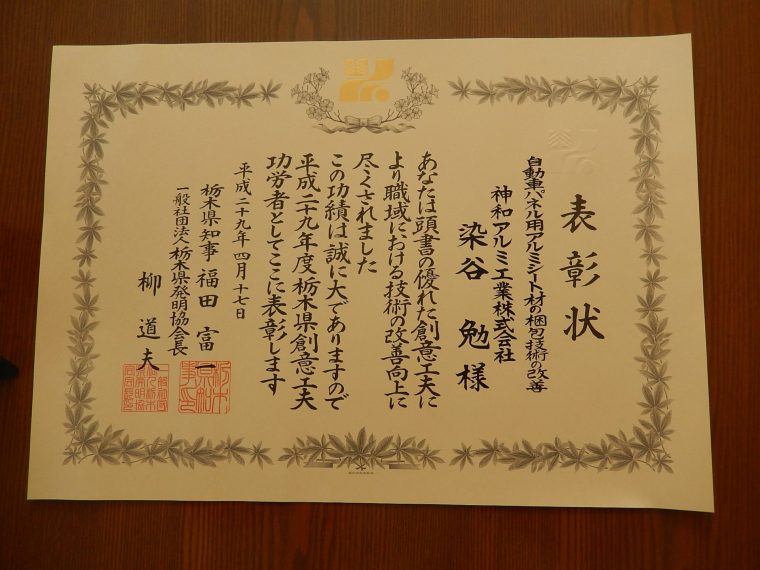 表彰状
自動車パネル用アルミシート材の梱包技術の改善
神和アルミ工業株式会社
染谷 勉 様
あなたは頭書の優れた創意工夫に
より職域における技術の改善向上に
尽くされました
この功績は誠に大でありますので
平成二十九年度栃木県創意工夫
功労者としてここに表彰します
平成二十九年四月十七日
栃木県知事 福田富一
一般社団法人栃木県発明協会会長
柳 道夫